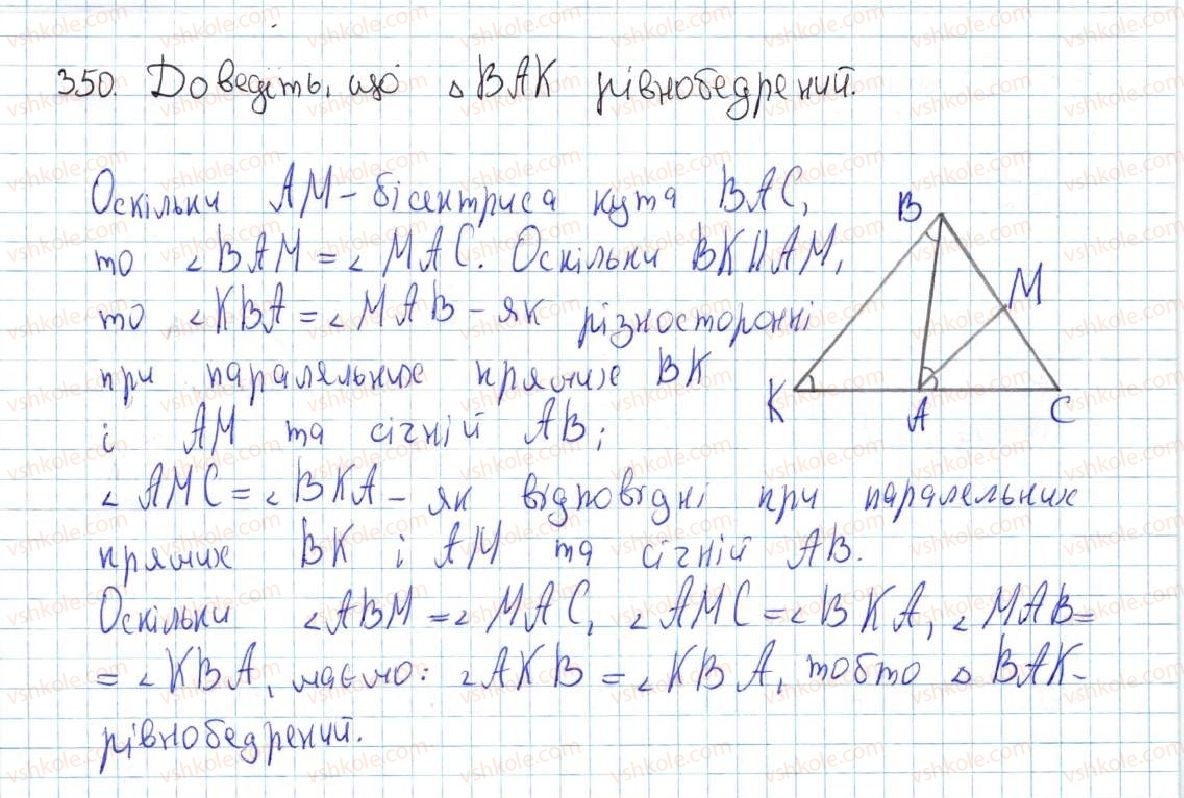 350. Доведіть, що △ BAK рівнобедрений.
Оскільки AM - бісектриса кута BAC,
то ∠BAM = ∠MAC. Оскільки BK||AM,
то ∠KBA = ∠MAB - як різносторонні
при паралельних прямих BK
і AM та січній AB;
∠AMC = ∠BKA - як відповідні при паралельних
прямих BK і AM та січній AB.
Оскільки ∠ABM = ∠MAC, ∠AMC = ∠BKA, ∠MAB =
= ∠KBA, маємо: ∠AKB = ∠KBA, тобто △ BAK -
рівнобедрений.
B
M
K
A
C
vshkole.com